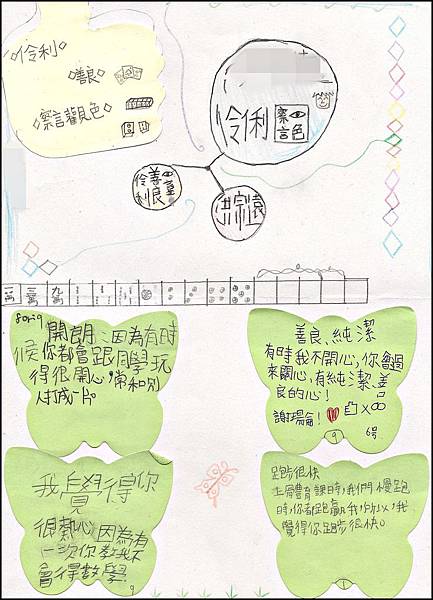 伶利
善良
察言觀色
伶俐
察言色
善良
伶利
洪宗遠
一萬
三萬
九萬
開朗:因為有時
候你都會跟同學玩
得很開心,常和別
人打成一片。
善良、純潔
有時我不開心,你會過
來關心,有純潔、善
良的心!
謝瑞倫!
9
6号
我覺得你
很熱心,因為有
一次你教我不
會得數學。
9
跑步很快
上體育課時,我們慢跑
時,你都跑贏我,所以,我
覺得你跑步很快。
1